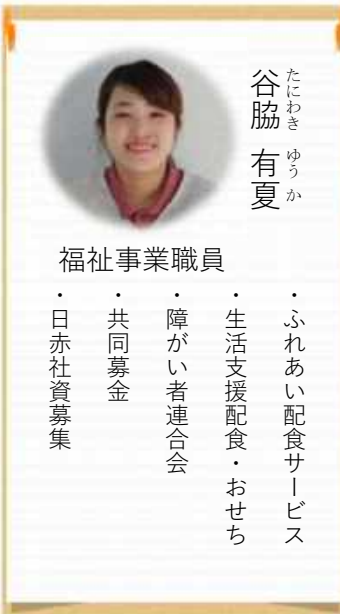 谷脇 有夏
たにわき ゆうか
福祉事業職員
・ふれあい配食サービス
・生活支援配食・おせち
・障がい者連合会
・共同募金
・日赤社資募集